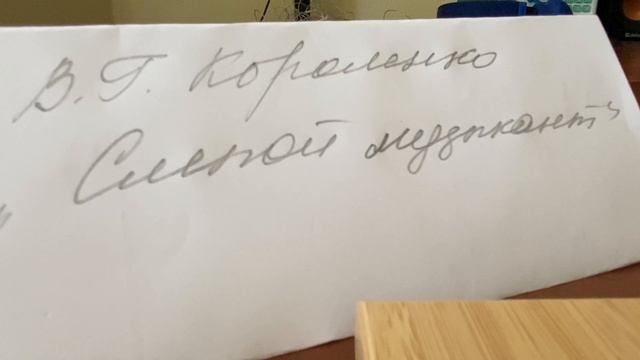 В. Г. Короленко
„ Слепой музыкант"